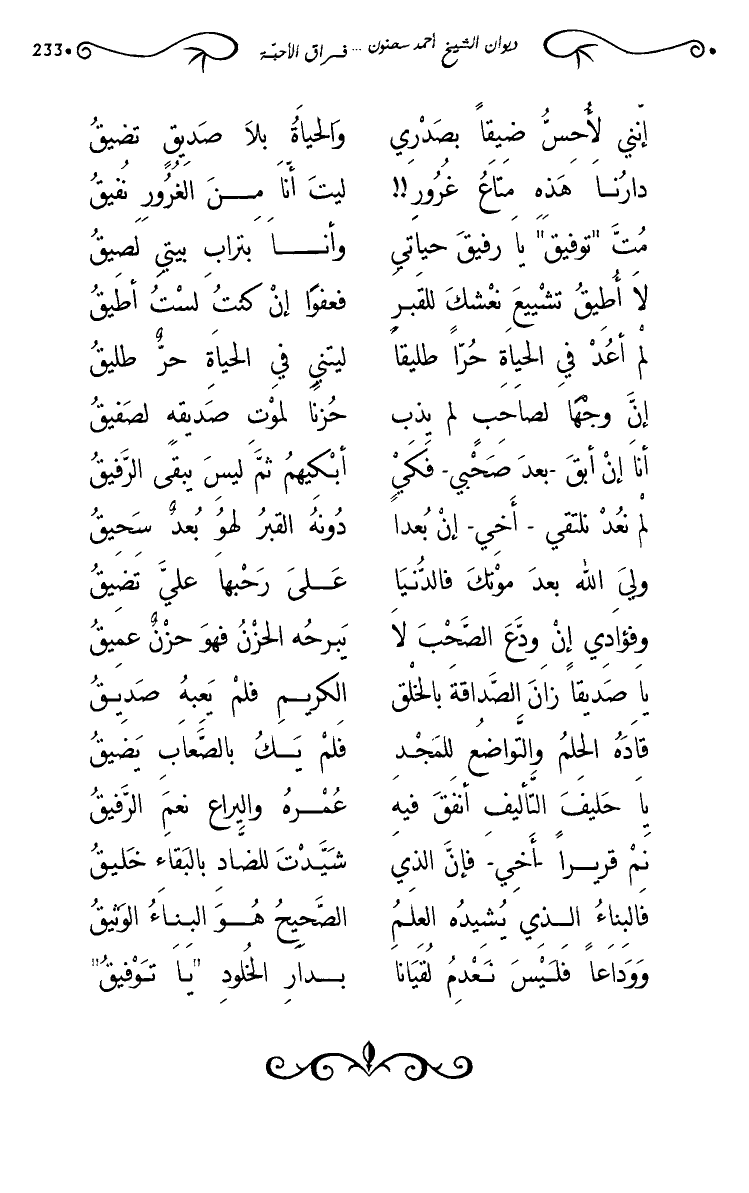 ديوان الشيخ أحمد سحنون ... فراق الأحبّة 233
إنّني لأُحسُّ ضيقاً بصَدْرِي والحياةُ بلاَ صَديقٍ تضيقُ
دارُنا هَذه متَاعُ غرُورٍ!! ليتَ أنّا مِنَ الغرُورِ نُفيقُ
مُتَّ "توفيق" يا رفيقَ حياتي وأنا بترابِ بيتي لصيقُ
لا أُطيقُ تشْييعَ نعْشكَ للقبرِ فعفوًا إنْ كنتُ لسْتُ أطيقُ
لمْ أعُدْ في الحياةِ حُرّاً طليقاً ليتني في الحياةِ حرٌّ طليقُ
إنَّ وجْهًا لصاحبٍ لم يذب حُزنًا لموْتِ صَديقهِ لصَفيقُ
أنا إنْ أبقَ -بعدَ صَحْبي- فكَيْ أبْكيهمُ ثمَّ ليسَ يبقى الرَّفيقُ
لمْ نعُدْ نلتقي - أَخي- إنْ بُعداً دُونهُ القبرُ لهوُ بُعدٌ سَحيقُ
وليَ الله بعدَ موْتكَ فالدُّنيَا عَلىَ رَحْبها عليَّ تضيقُ
وفؤادي إنْ ودَّعَ الصَّحْبَ لا يَبرحُه الحزْنُ فهوَ حزْنٌ عميقُ
يا صَديقاً زانَ الصَّداقة بالخلْق الكريمِ فلمْ يَعِبهُ صَديقُ
قادَهُ الحلمُ والتَّواضعُ للمَجْدِ فلمْ يَكُ بالصَّعابِ يَضيقُ
يا حَليفَ التَّأليفِ أنفقَ فيهِ عُمْرهُ واليراعِ نعمَ الرَّفيقُ
نمْ قريراً -أَخي- فإنَّ الذي شيَّدْتَ للضادِ بالبَقاءِ خَليقُ
فالبناءُ الذي يُشيدُه العلمُ الصَّحيحُ هُوَ البناءُ الوَثيقُ
وَوَداعاً فلَيْسَ نَعْدمُ لُقيَانا بدارِ الخُلودِ "يا تَوْفيقُ"